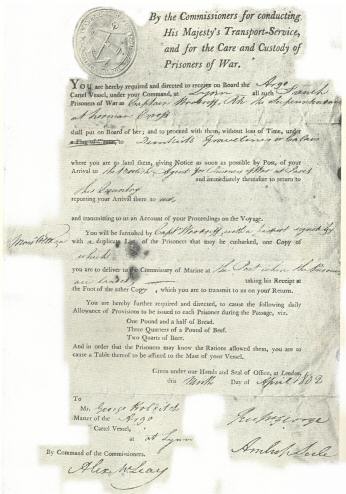 By the Commissioners for conducting
His Majesty's Transport-Service,
and for the Care and Custody of
Prisoners of War.
You are hereby required and directed to receive on Board the Argo
Cartel Vessel, under your Command, at Lynn all such French
Prisoners of War as Captain Woodriff, R.N. the Superintendant
at Norman Cross
shall put on Board of her; and to proceed with them, without loss of Time, under
a Flag of Truce, to Dunkirk Gravelines or Calais
where you are to land them, giving Notice as soon as possible by Post, of your
Arrival to the British Agent for Prisoners of War at Paris
and immediately thereafter to return to
this Country
reporting your Arrival there to us,
and transmitting to us an Account of your Proceedings on the Voyage.
You will be furnished by Captn Woodriff with a
with a duplicate List of the Prisoners that may be embarked, one Copy of
which
you are to deliver to the Commissary of Marine at the Port where the Prisoners
are landed taking his Receipt at
the Foot of the other Copy, which you are to transmit to us on your Return.
You are hereby further required and directed, to cause the following daily
Allowance of Provisions to be issued to each Prisoner during the Passage, viz.
One Pound and a half of Bread.
Three Quarters of a Pound of Beef.
Two Quarts of Beer.
And in order that the Prisoners may know the Rations allowed them, you are to
cause a Table thereof to be affixed to the Mast of your Vessel.
Given under our Hands and Seal of Office, at London,
this Day of April 1802
To
Mr. George
Master of the Argo
Cartel Vessel,
at Lynn
Rup George
Ambrose Serle
By Command of the Commissioners.
Alex McLeay